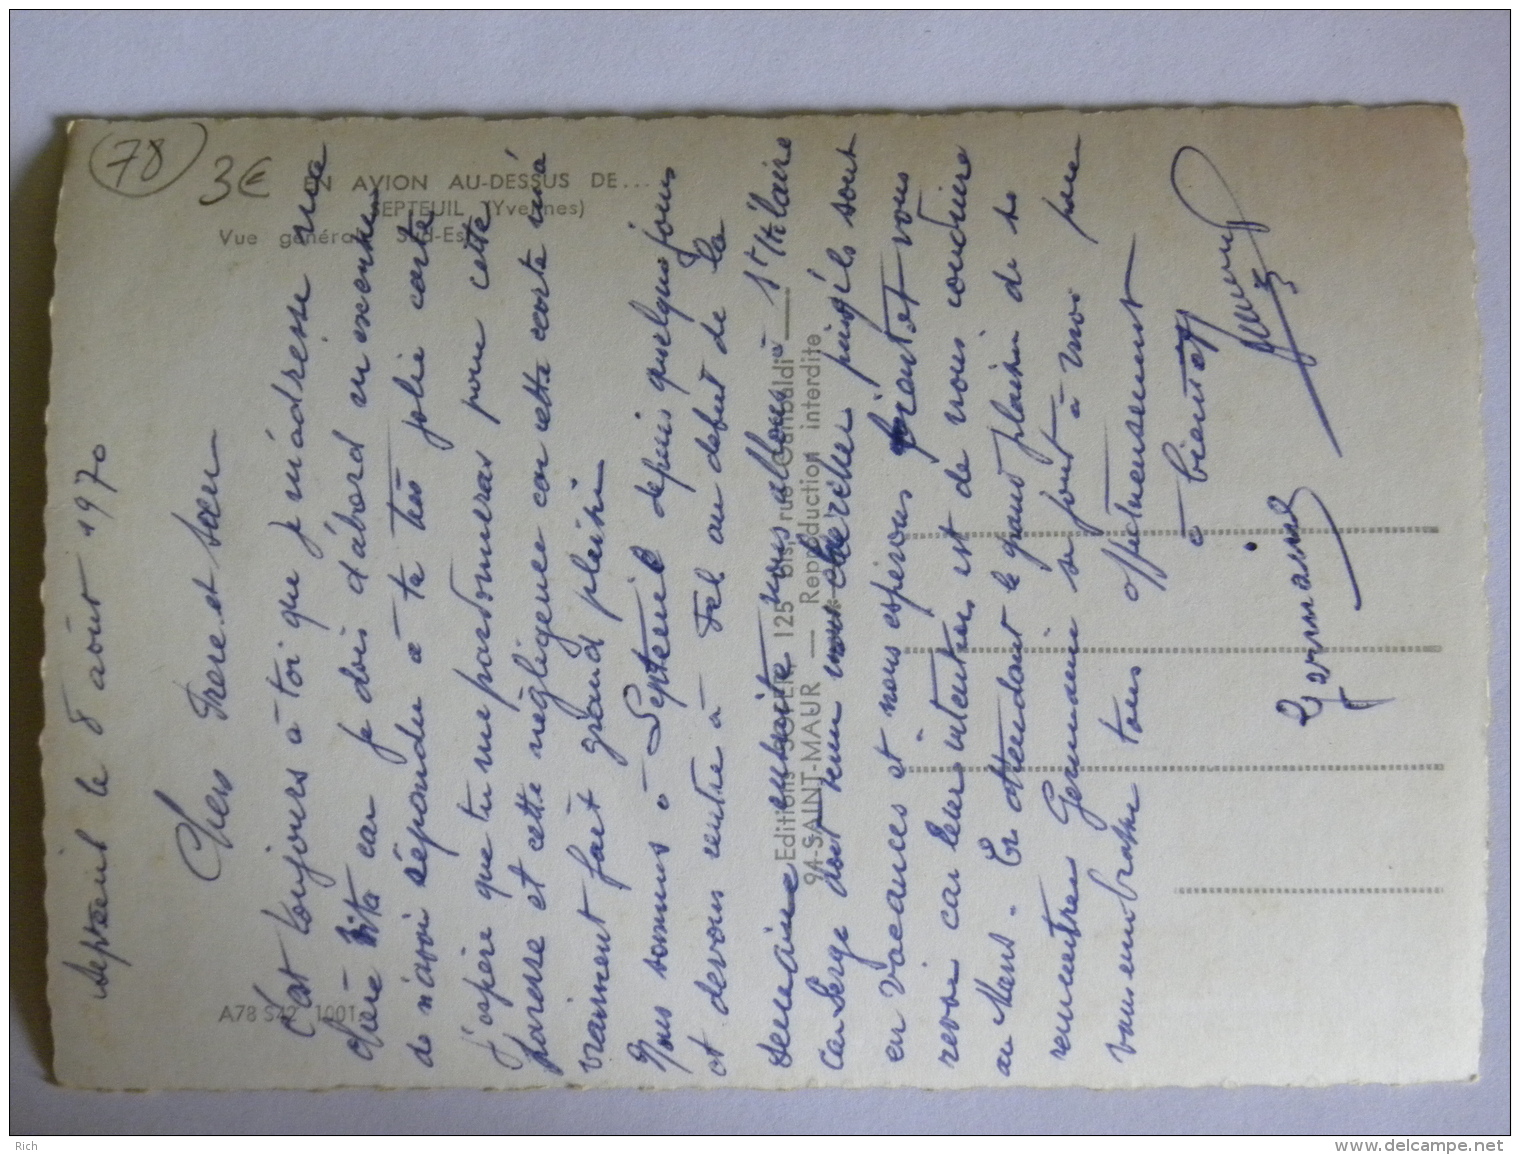 78
3€
AVION AU-DESSUS DE...
SEPTEUIL (Yvelines)
Vue générale Sud-Est
A78 S42 1001
Editions SOFER, 125 bis, rue Garibaldi
94-SAINT-MAUR — Reproduction interdite
Septeuil le 8 août 1970
Chers Frere et Sœur
C'est toujours à toi que je m'adresse ma
chère Rita car je dois d'abord m'excuser
de n'avoir répondu à ta très jolie carte
j'espère que tu me pardonneras pour cette
paresse et cette négligence car cette carte m'a
vraiment fait grand plaisir
Nous sommes à Septeuil depuis quelques jours
et devons rentrer à au debut de la
semaine ensuite nous allons à St Hilaire
car Serge doit venir nous chercher puisqu'ils sont
en vacances et nous espérons bientot vous
revoir car leur intention est de nous conduire
au Mans. En attendant le grand plaisir de se
rencontrer Germaine se joint à moi pour
vous embrasser tous affectueusement
à bientot
Germaine
Rich
www.delcampe.net